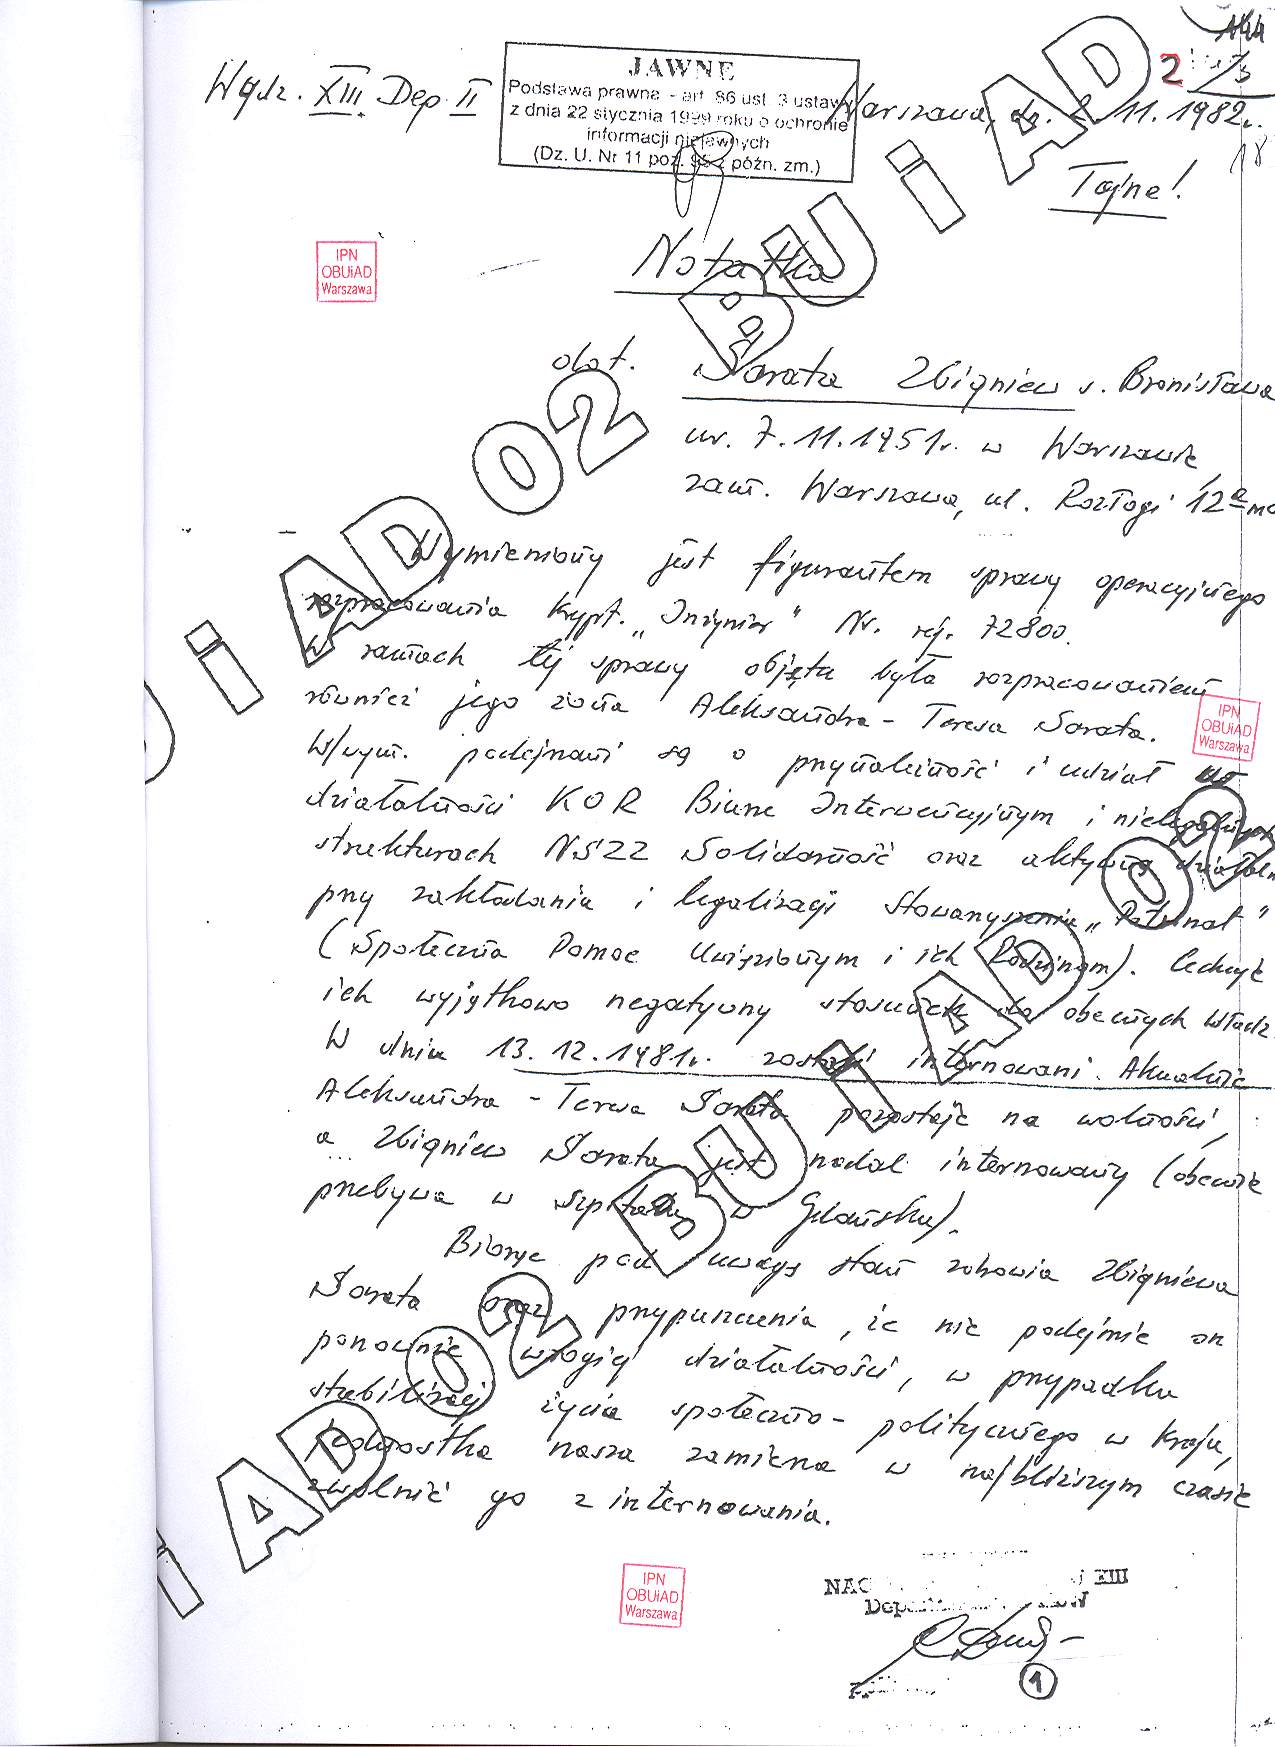 Wydz. XIII Dep. II
JAWNE
Podstawa prawna - art. 86 ust. 3 ustawy
z dnia 22 stycznia 1999 roku o ochronie
informacji niejawnych
(Dz. U. Nr 11 poz. 95 z późn. zm.)
2
Warszawa, dn. 2.11.1982r.
18
Tajne!
IPN
OBUiAD
Warszawa
Notatka
dot. Sarata Zbigniew s. Bronisława
ur. 7.11.1951r. w Warszawie
zam. Warszawa, ul. Rozłogi 12
Wymieniony jest figurantem sprawy operacyjnego
rozpracowania krypt. "Inżynier" Nr. rej. 72800.
W ramach tej sprawy objęta była rozpracowaniem
również jego żona Aleksandra - Teresa Sarata.
W/wym. podejrzani są o przynależność i udział w
działalności KOR Biurze Interwencyjnym i nielegalnych
strukturach NSZZ Solidarność oraz aktywną działaln
przy zakładaniu i legalizacji Stowarzyszenia "Patronat"
(Społeczna Pomoc Uwięzionym i ich Rodzinom). Cechuje
ich wyjątkowo negatywny stosunek do obecnych władz.
W dniu 13.12.1981r. zostali internowani. Aktualnie
Aleksandra - Teresa Sarata pozostaje na wolności,
a Zbigniew Sarata jest nadal internowany (obecnie
przebywa w szpitalu w Gdańsku).
Biorąc pod uwagę stan zdrowia Zbigniewa
Sarata oraz przypuszczenia, że nie podejmie on
ponownie wrogiej działalności, w przypadku
stabilizacji życia społeczno - politycznego w kraju,
jednostka nasza zamierza w najbliższym czasie
zwolnić go z internowania.
IPN
OBUiAD
Warszawa
IPN
OBUiAD
Warszawa
XIII
1
BU i AD 02
BU i AD 02